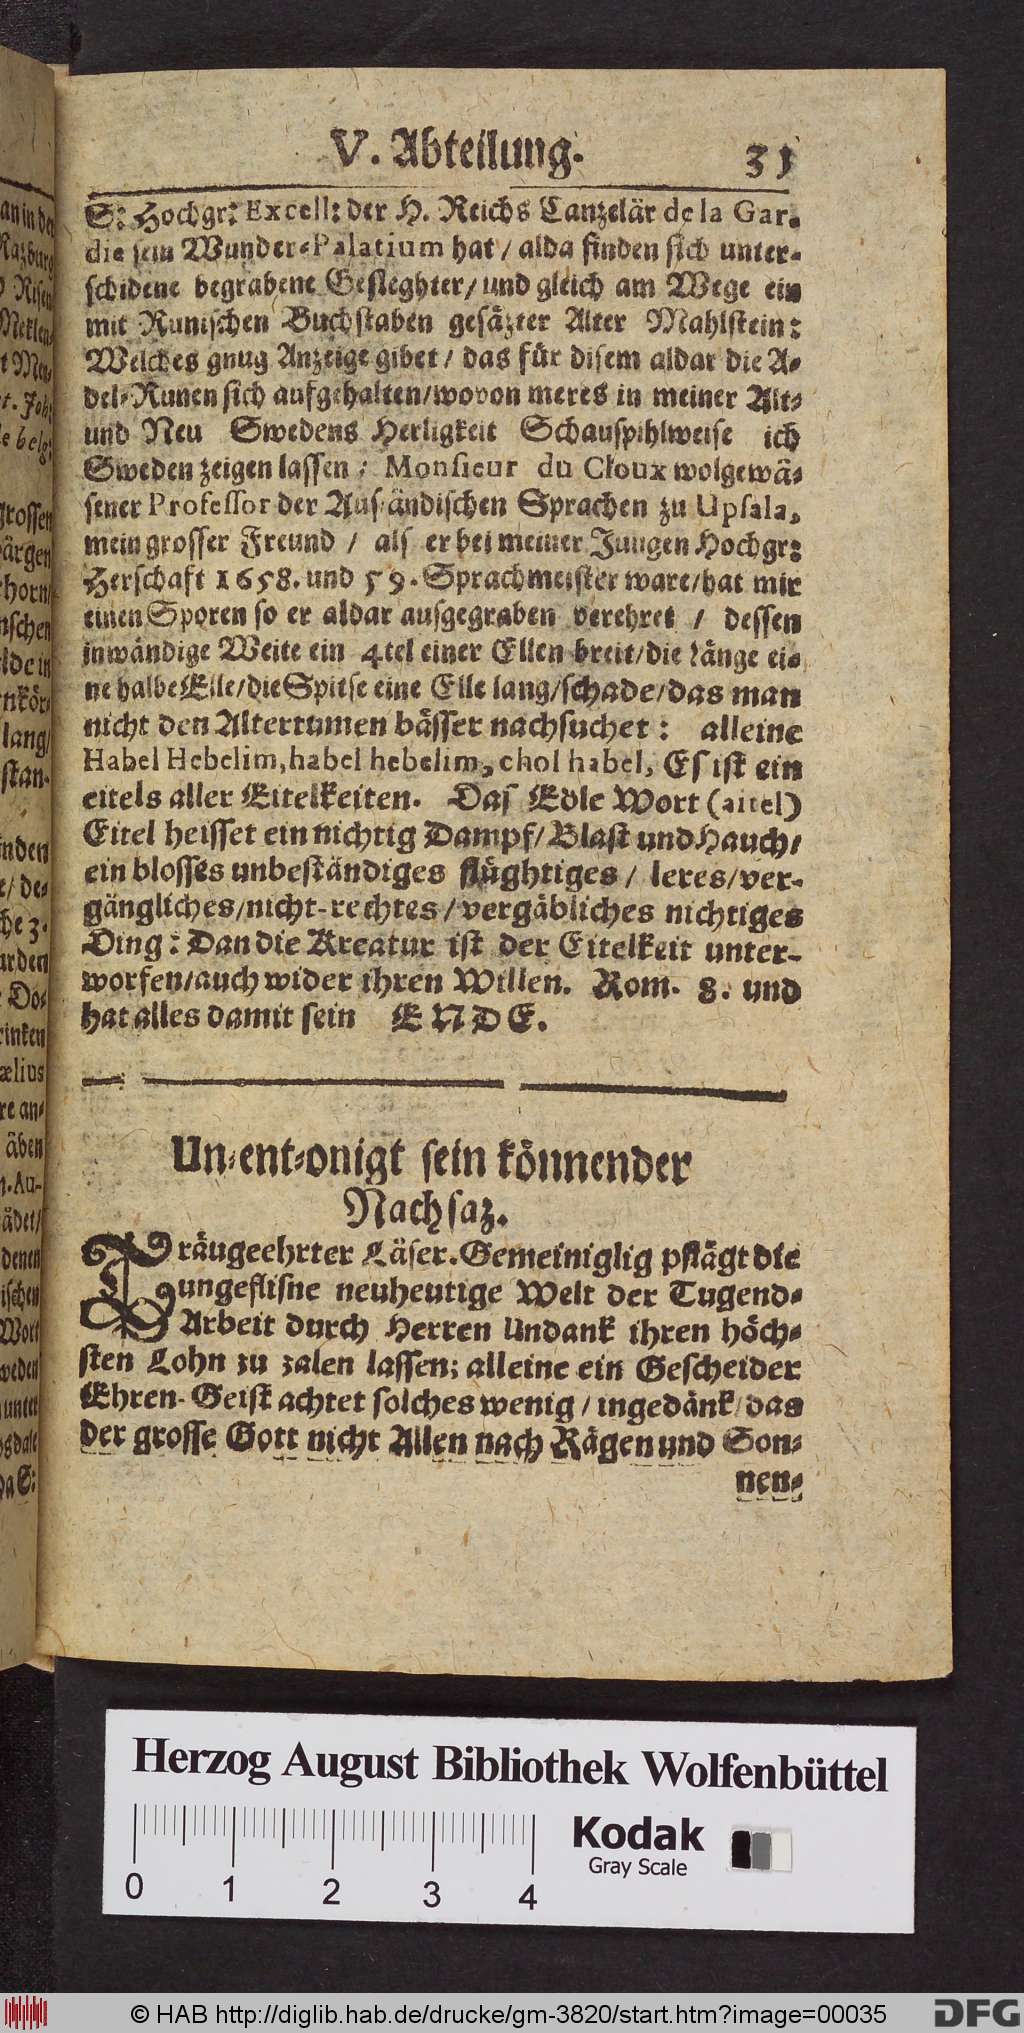 V. Abteilung. 31
S: Hochgr: Excell: der H. Reichs Canzelär de la Gar-
die sein Wunder-Palatium hat / alda finden sich unter-
schidene begrabene Gesleghter / und gleich am Wege ein
mit Runischen Buchstaben gesäzter Alter Mahlstein:
Welches gnug Anzeige gibet / das für disem aldar die A-
del-Runen sich aufgehalten / wovon meres in meiner Alt-
und Neu Swedens Herligkeit Schauspihlweise ich
Sweden zeigen lassen: Monsieur du Cloux wolgewä-
sener Professor der Ausländischen Sprachen zu Upsala,
mein grosser Freund / als er bei meiner Jungen Hochgr:
Herschaft 1658. und 59. Sprachmeister ware / hat mir
einen Sporen so er aldar ausgegraben verehret / dessen
inwändige Weite ein 4tel einer Ellen breit / die Länge ei-
ne halbe Elle / die Spitse eine Elle lang / schade / das man
nicht den Altertumen bässer nachsuchet: alleine
Habel Hebelim, habel hebelim, chol habel, Es ist ein
eitels aller Eitelkeiten. Das Edle Wort (aitel)
Eitel heisset ein nichtig Dampf / Blast und Hauch /
ein blosses unbeständiges flüghtiges / leres / ver-
gängliches / nicht-rechtes / vergäbliches nichtiges
Ding: Dan die Kreatur ist der Eitelkeit unter-
worfen / auch wider ihren Willen. Rom. 8. und
hat alles damit sein ENDE.
Un-ent-onigt sein könnender
Nachsaz.
Träugeehrter Läser. Gemeiniglig pflägt die
ungeflisne neuheutige Welt der Tugend-
Arbeit durch Herren Undank ihren höch-
sten Lohn zu zalen lassen; alleine ein Gescheider
Ehren-Geist achtet solches wenig / ingedänk / das
der grosse Gott nicht Allen nach Rägen und Son-
nen-
Herzog August Bibliothek Wolfenbüttel
0 1 2 3 4
Kodak
Gray Scale
© HAB http://diglib.hab.de/drucke/gm-3820/start.htm?image=00035
DFG